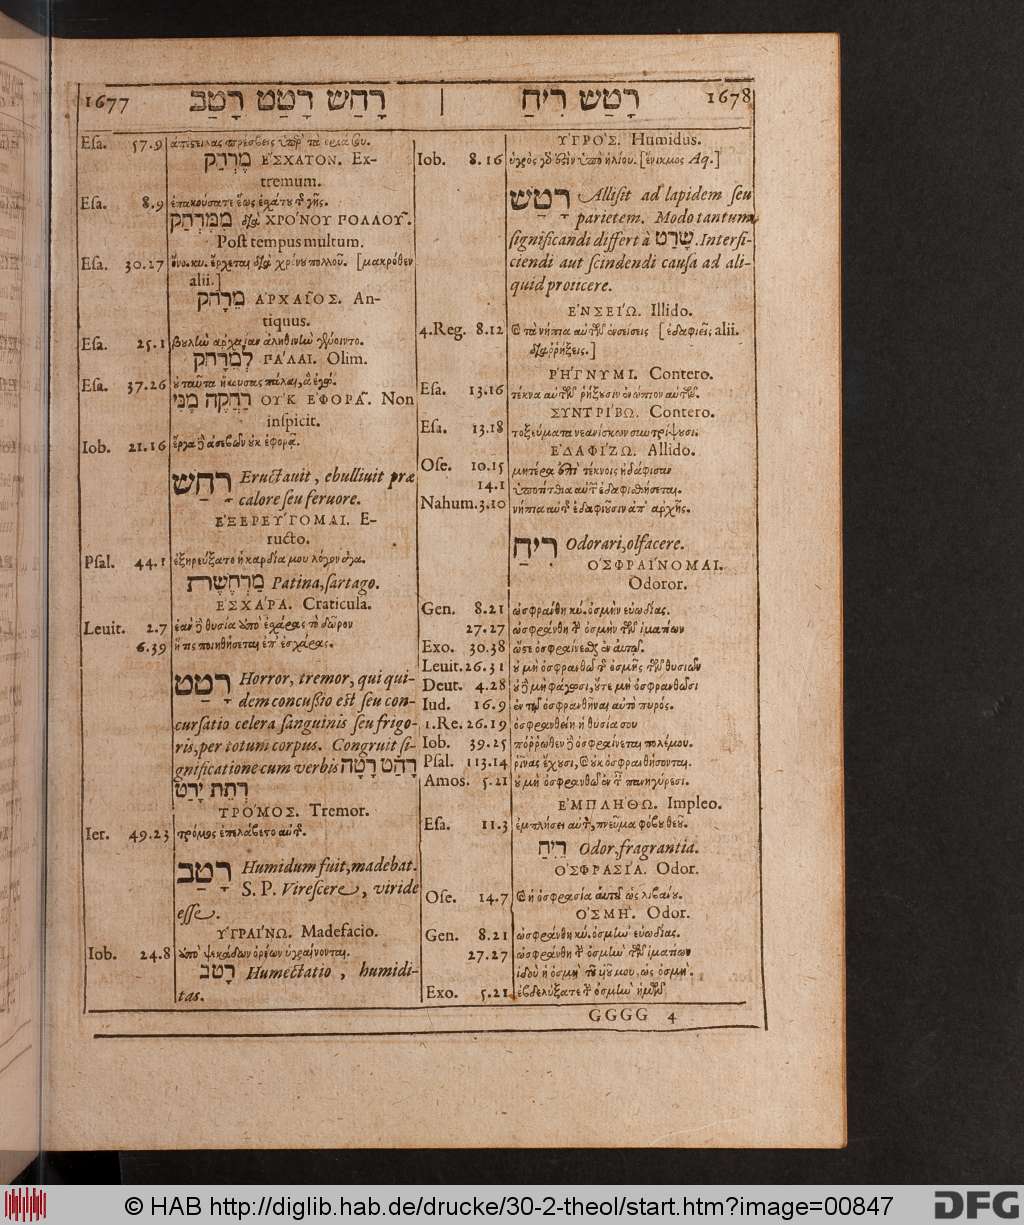 1677 רָחַשׁ רָטַט רָטַב
Esa. 57.9 ἀπέστειλας πρέσβεις ὑπὲρ τὰ ὅριά σου.
מֶרְחָק ἜΣΧΑΤΟΝ. Ex-
tremum.
Esa. 8.9 ἐπακούσατε ἕως ἐσχάτου τῆς γῆς.
מִמֶּרְחָק διὰ ΧΡΌΝΟΥ ΠΟΛΛΟΥ͂.
Post tempus multum.
Esa. 30.27 ὄνο. κυ. ἔρχεται διὰ χρόνου πολλοῦ. [μακρόθεν
alii.]
מֵרָחֹק ἈΡΧΑΙ͂ΟΣ. An-
tiquus.
Esa. 25.1 βουλὴν ἀρχαίαν ἀληθινὴν γένοιντο.
לְמֵרָחֹק ΠΆΛΑΙ. Olim.
Esa. 37.26 οὐ ταῦτα ἤκουσας πάλαι, ἃ ἐγὼ.
רָחֲקָה מֶנִּי ΟΥΚ ἘΦΟΡΑ͂. Non
inspicit.
Iob. 21.16 ἔργα δὲ ἀσεβῶν οὐκ ἐφορᾷ.
רָחַשׁ Eructauit, ebulliuit præ
calore seu feruore.
ἘΞΕΡΕΎΓΟΜΑΙ. E-
ructo.
Psal. 44.1 ἐξηρεύξατο ἡ καρδία μου λόγον ἀγα.
מַרְחֶשֶׁת Patina, sartago.
ἘΣΧΆΡΑ. Craticula.
Leuit. 2.7 ἐὰν δὲ θυσία ἀπὸ ἐσχάρας τὸ δῶρον
6.39 ἥτις ποιηθήσεται ἐπ' ἐσχάρας.
רָטַט Horror, tremor, qui qui-
dem concussio est seu con-
cursatio celera sanguinis seu frigo-
ris, per totum corpus. Congruit si-
gnificatione cum verbis רָהַט רָטָה
רָתַת יָרַט
ΤΡΌΜΟΣ. Tremor.
Ier. 49.23 τρόμος ἐπελάβετο αὐτῆς.
רָטַב Humidum fuit, madebat.
S. P. Virescere, viride
esse.
ὙΓΡΑΊΝΩ. Madefacio.
Iob. 24.8 ἀπὸ ψεκάδων ὀρέων ὑγραίνονται.
רָטֹב Humectatio, humidi-
tas.
רָטַשׁ רִיחַ 1678
ὙΓΡΌΣ. Humidus.
Iob. 8.16 ὑγρὸς γάρ ἐστιν ὑπὸ ἡλίου. [ἔνικμος Aq.]
רָטַשׁ Allisit ad lapidem seu
parietem. Modo tantum
significandi differt à שָׂרַט. Interfi-
ciendi aut scindendi causa ad ali-
quid proiicere.
ἘΝΣΕΊΩ. Illido.
4.Reg. 8.12 καὶ τὰ νήπια αὐτῶν ἐνσείσεις [ἐδαφιεῖς alii.
διαῤῥήξεις.]
ῬΉΓΝΥΜΙ. Contero.
Esa. 13.16 τέκνα αὐτῶν ῥήξουσιν ἐνώπιον αὐτῶν.
ΣΥΝΤΡΊΒΩ. Contero.
Esa. 13.18 τοξεύματα νεανίσκων συντρίψουσι.
ἘΔΑΦΊΖΩ. Allido.
Ose. 10.15 μητέρα ἐπὶ τέκνοις ἠδάφισαν
14.1 ὑποτίτθια αὐτῶν ἐδαφισθήσεται.
Nahum. 3.10 νήπια αὐτῆς ἐδαφιοῦσιν ἀπ' ἀρχῆς.
רִיחַ Odorari, olfacere.
ὈΣΦΡΑΊΝΟΜΑΙ.
Odoror.
Gen. 8.21 ὠσφράνθη κύ. ὀσμὴν εὐωδίας.
27.27 ὠσφράνθη τὴν ὀσμὴν τῶν ἱματίων
Exo. 30.38 ὥστε ὀσφραίνεσθαι ἐν αὐτῷ.
Leuit. 26.31 οὐ μὴ ὀσφρανθῶ τῆς ὀσμῆς τῶν θυσιῶν
Deut. 4.28 οὐδὲ μὴ φάγωσι, οὔτε μὴ ὀσφρανθῶσι
Iud. 16.9 ἐν τῷ ὀσφρανθῆναι αὐτὸ πυρός.
1.Re. 26.19 ὀσφρανθείη ἡ θυσία σου
Iob. 39.25 πόῤῥωθεν δὲ ὀσφραίνεται πολέμου.
Psal. 113.14 ῥῖνας ἔχουσι, καὶ οὐκ ὀσφρανθήσονται.
Amos. 5.21 οὐ μὴ ὀσφρανθῶ ἐν ταῖς πανηγύρεσι.
ἘΜΠΛΉΘΩ. Impleo.
Esa. 11.3 ἐμπλήσει αὐτὸν, πνεῦμα φόβου θεοῦ.
רֵיחַ Odor, fragrantia.
ὈΣΦΡΑΣΊΑ. Odor.
Ose. 14.7 καὶ ἡ ὀσφρασία αὐτοῦ ὡς λιβάνου.
ὈΣΜΉ. Odor.
Gen. 8.21 ὠσφράνθη κύ. ὀσμὴν εὐωδίας.
27.27 ὠσφράνθη τὴν ὀσμὴν τῶν ἱματίων
ἰδοὺ ἡ ὀσμὴ τοῦ υἱοῦ μου, ὡς ὀσμὴ.
Exo. 5.21 ἐβδελύξατε τὴν ὀσμὴν ἡμῶν
GGGG 4
© HAB http://diglib.hab.de/drucke/30-2-theol/start.htm?image=00847
DFG